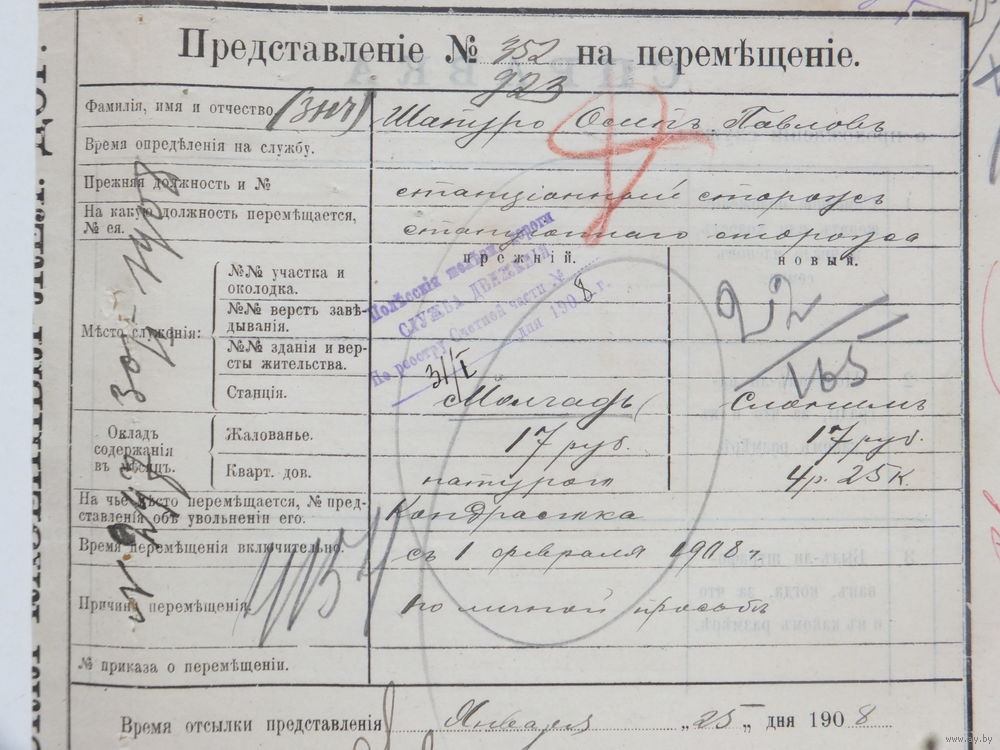 Представленіе № 352 на перемѣщеніе.
923
Фамилія, имя и отчество (знч) Шапуро Осипъ Павловъ
Время опредѣленія на службу.
Прежняя должность и № станціонный сторожъ
На какую должность перемѣщается, № ея. станціоннаго сторожа
прежній. новый.
Мѣсто служенія:
№№ участка и околодка.
№№ верстъ завѣдыванія.
№№ зданія и версты жительства.
Станція. Молчадь Слонимъ
22
165
Полѣсскія желѣз. дороги
СЛУЖБА ДВИЖЕНІЯ
По реестру Счетной части №
дня 1908 г.
31/I
Окладъ содержанія въ мѣсяцъ.
Жалованье. 17 руб. 17 руб.
Кварт. дов. натурою 4 р. 25 к.
На чье мѣсто перемѣщается, № представленія объ увольненіи его. Кондратика
Время перемѣщенія включительно. съ 1 февраля 1908 г.
Причина перемѣщенія. по личной просьбѣ
№ приказа о перемѣщеніи.
Время отсылки представленія Января „25„ дня 1908
www.ay.by